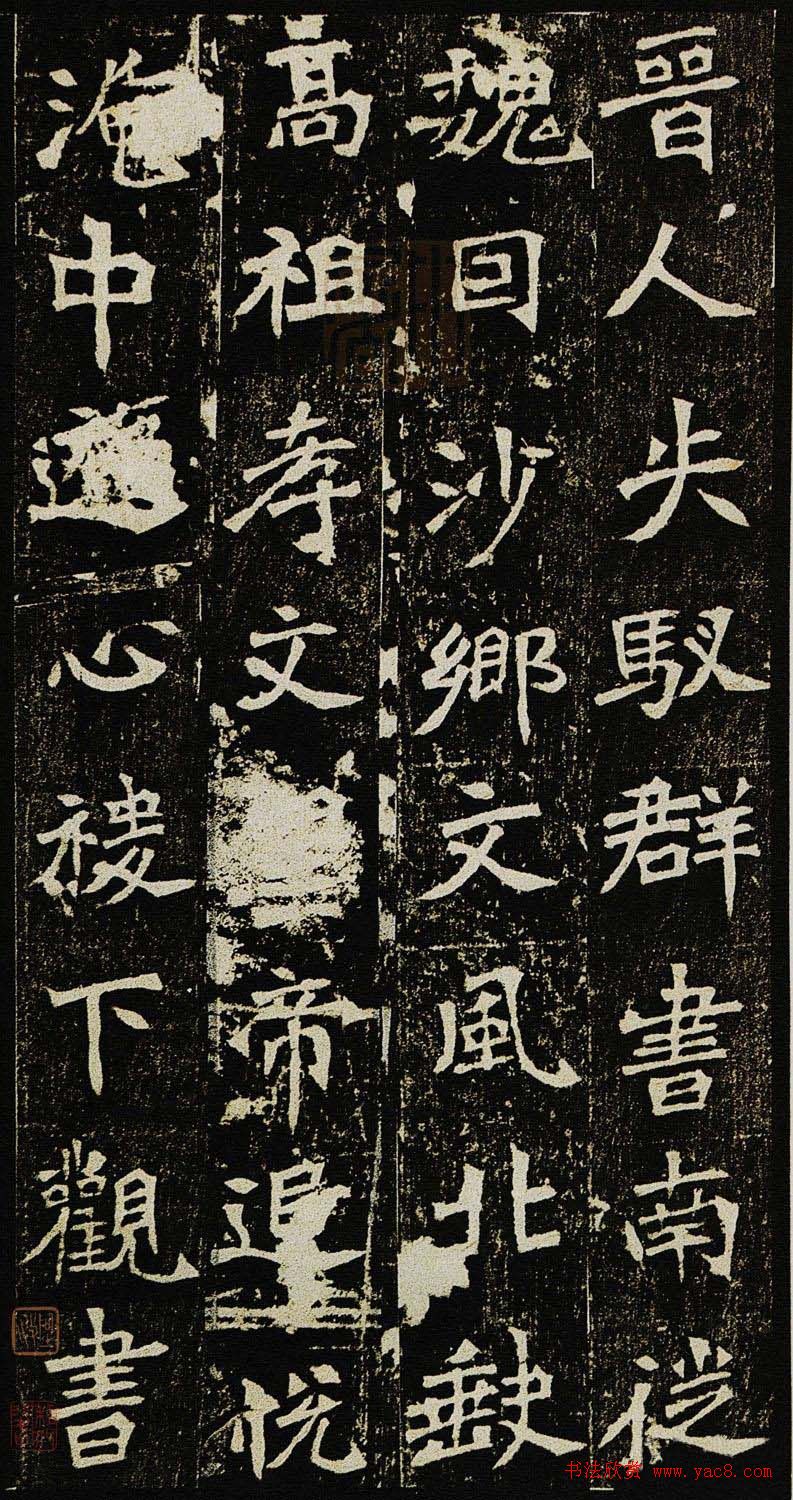 晉人失馭群書南徙
魏囙沙鄉文風北缺
高祖孝文帝追悅
淹中遊心稷下觀書
书法欣赏 www.yac8.com